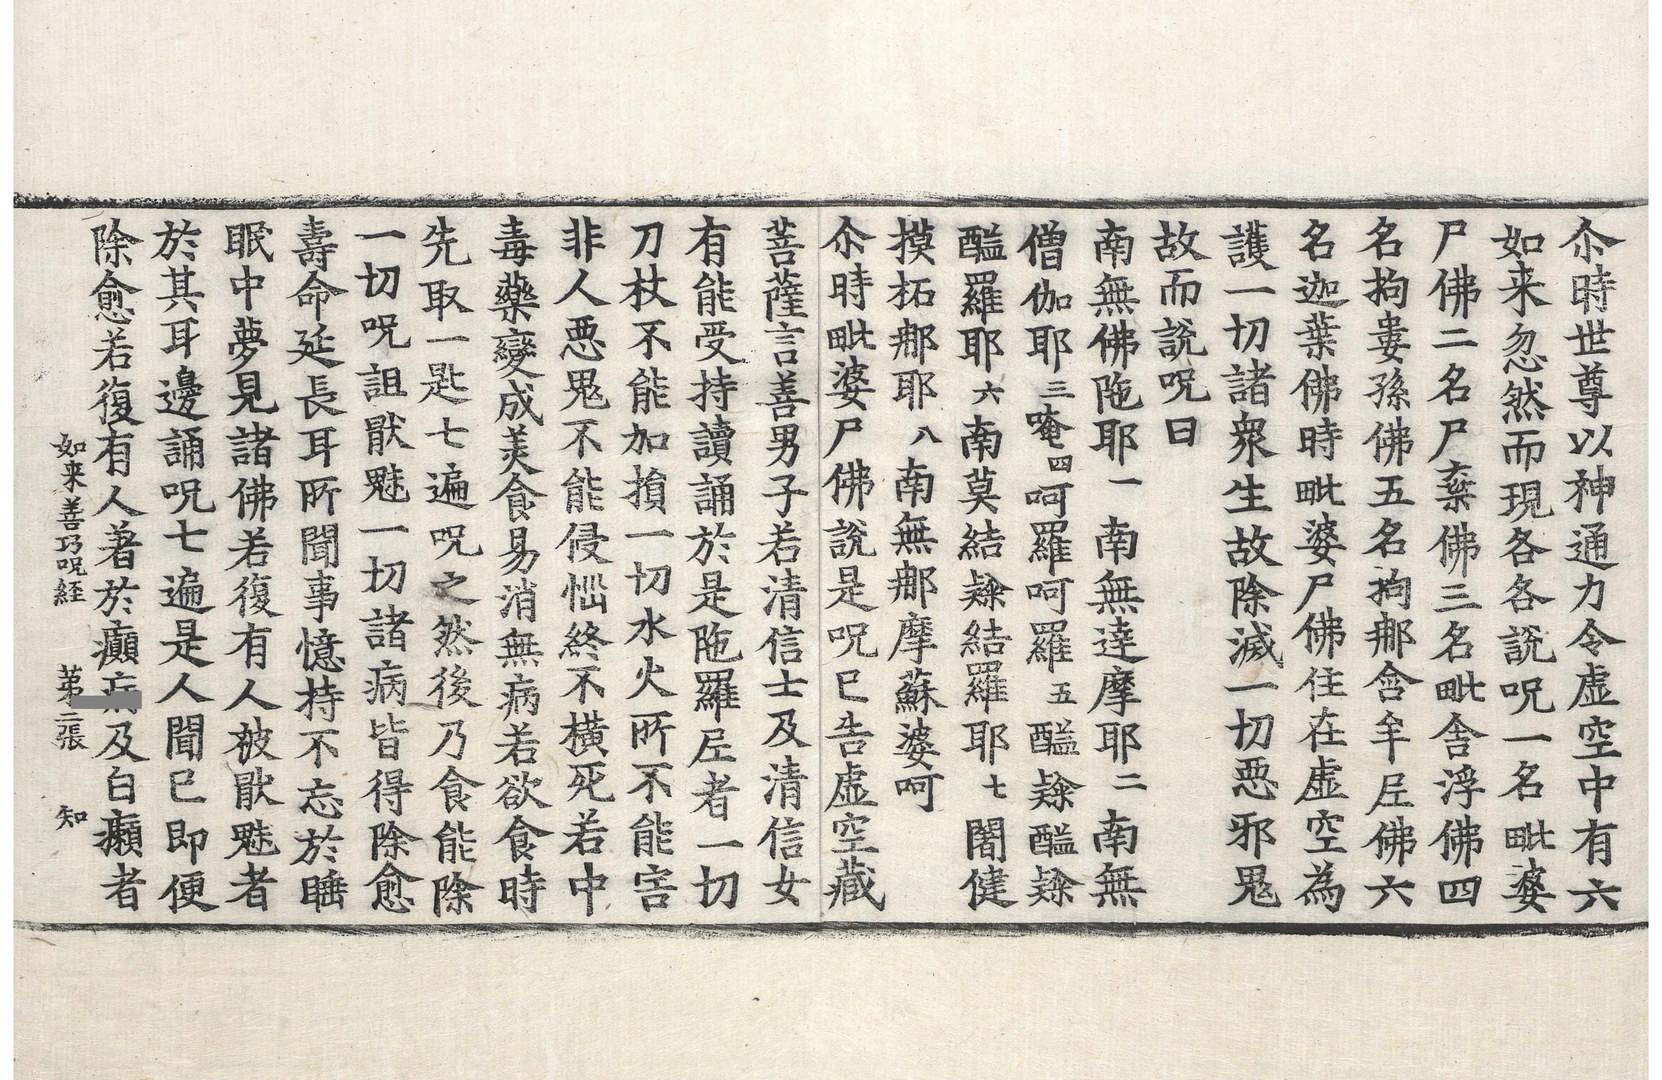 尒時世尊以神通力令虛空中有六
如来忽然而現各各説呪一名毗婆
尸佛二名尸棄佛三名毗舎浮佛四
名拘婁孫佛五名拘郍含牟𡰱佛六
名迦葉佛時毗婆尸佛住在虛空為
護一切諸衆生故除滅一切惡邪鬼
故而説呪曰
南無佛陁耶一南無達摩耶二南無
僧伽耶三唵四呵羅呵羅五醯𨽻醯𨽻
醯羅耶六南莫結𨽻結羅耶七闍健
摸柘郍耶八南無郍摩蘇婆呵
尒時毗婆尸佛說是呪已告虛空藏
菩薩言善男子若清信士及清信女
有能受持讀誦於是陁羅𡰱者一切
刀杖不能加損一切水火所不能害
非人惡鬼不能侵惱終不橫死若中
毒藥變成美食易消無病若欲食時
先取一匙七遍呪之然後乃食能除
一切呪詛猒魅一切諸病皆得除愈
壽命延長耳所聞事憶持不忘於睡
眠中夢見諸佛若復有人被猒魅者
於其耳邊誦呪七遍是人聞已即便
除愈若復有人著於癲病及白癩者
如来善巧呪経 第二張 知